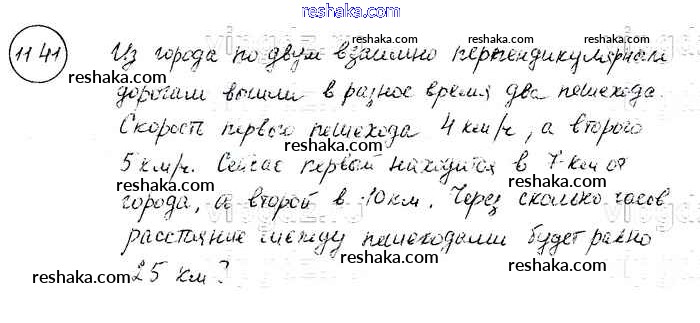 reshaka.com
1141 Из города по двум взаимно перпендикулярным
reshaka.com reshaka.com
дорогам вышли в разное время два пешехода.
reshaka.com
Скорость первого пешехода 4 км/ч, а второго
reshaka.com reshaka.com
5 км/ч. Сейчас первый находится в 7 км от
reshaka.com
города, а второй в 10 км. Через сколько часов
reshaka.com reshaka.com
расстояние между пешеходами будет равно
reshaka.com
25 км?
reshaka.com reshaka.com